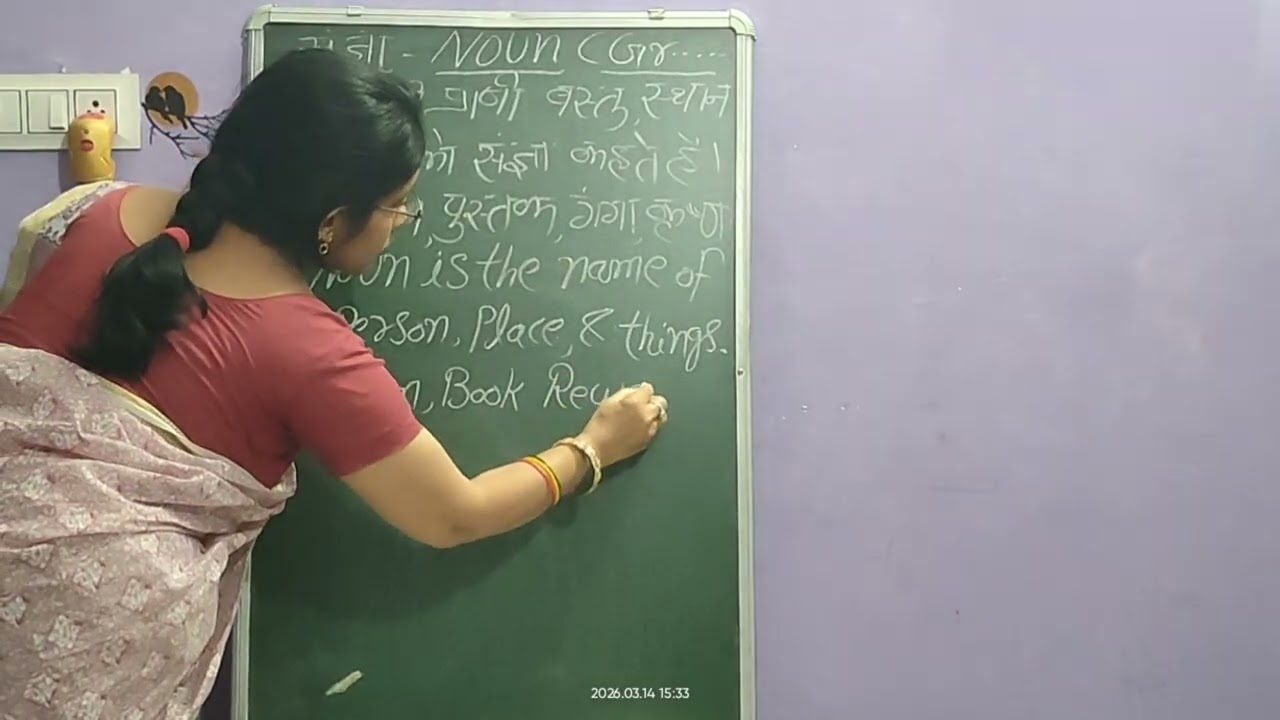 संज्ञा - NOUN (Gr.....
प्राणी वस्तु, स्थान
को संज्ञा कहते हैं।
पुस्तक, गंगा, कृष्ण
Noun is the name of
Person, Place, & things.
Book
2026.03.14 15:33